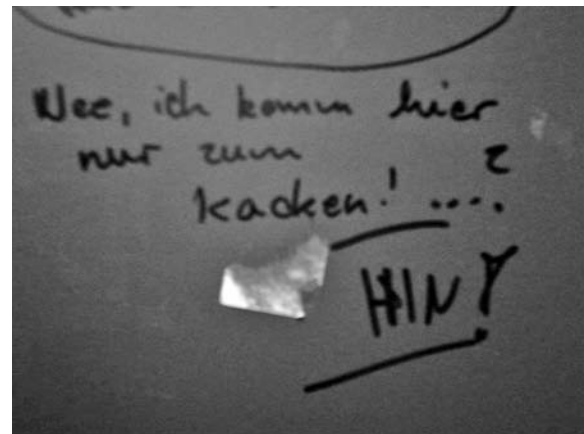 Nee, ich komm hier
nur zum
kacken! ....?
HIN!